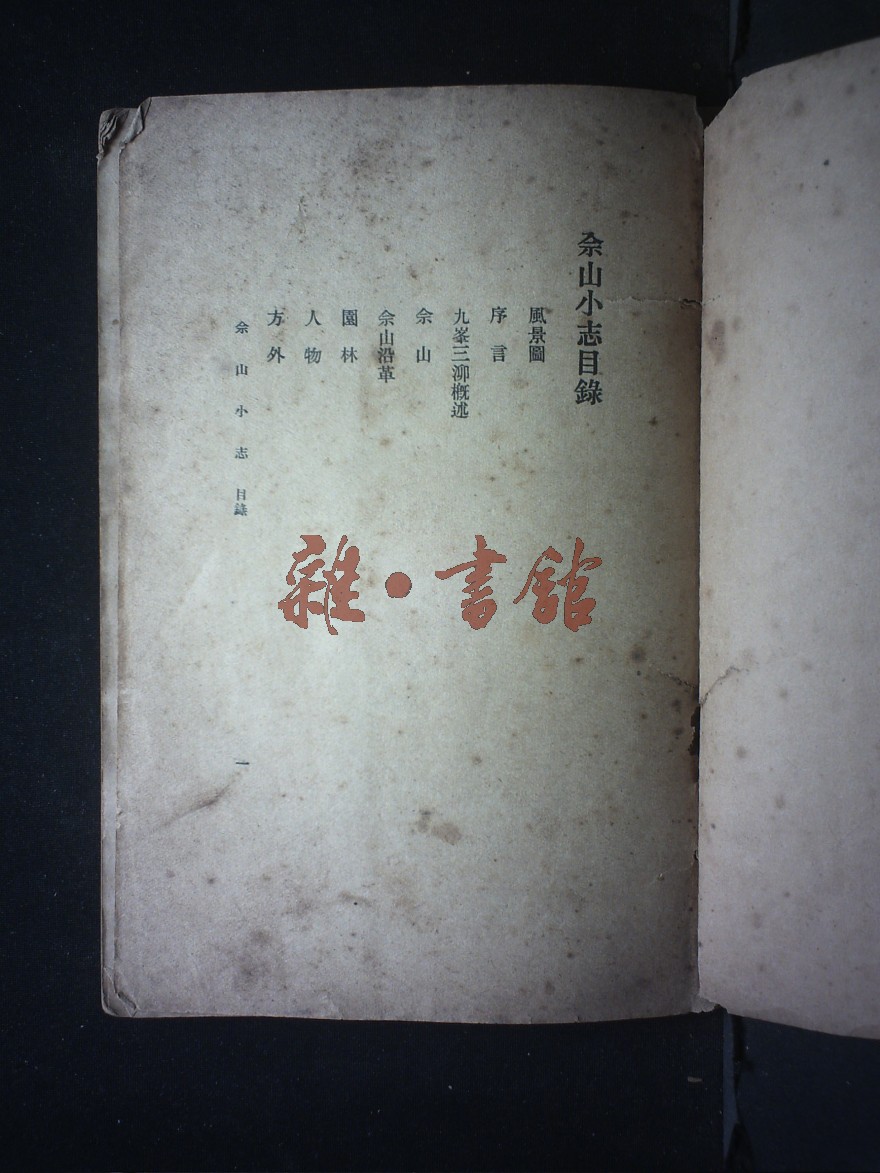 佘山小志目錄
風景圖
序言
九峯三泖概述
佘山
佘山沿革
園林
人物
方外
佘山小志 目錄
一
雜·書館